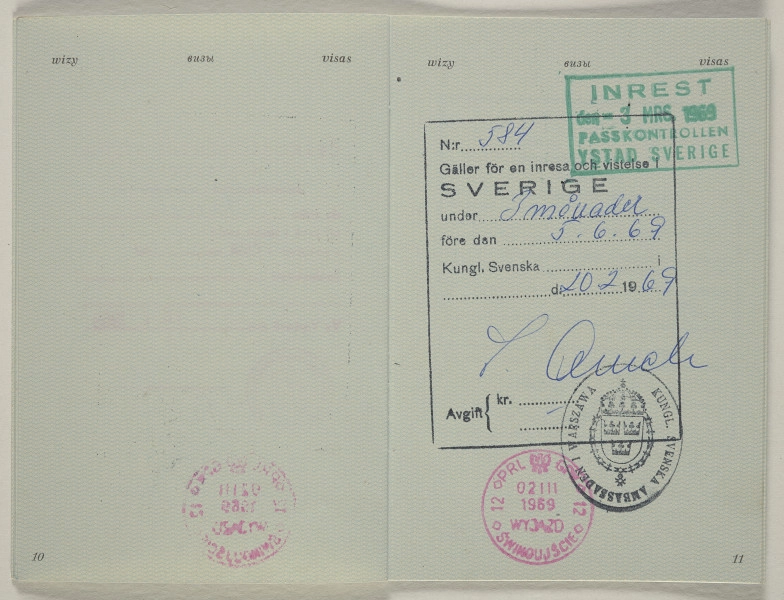 wizy визы visas
10
wizy визы visas
INREST
den - 3 MRS 1969
PASSKONTROLLEN
YSTAD SVERIGE
N:r 584
Gäller för en inresa och vistelse i
SVERIGE
under 3 månader
före den 5.6.69
Kungl. Svenska i
d. 20.2 1969
Avgift { kr.
KUNGL. SVENSKA AMBASSADEN I WARSZAWA
PRL
02 III
12 1969 12
WYJAZD
ŚWINOUJŚCIE
11